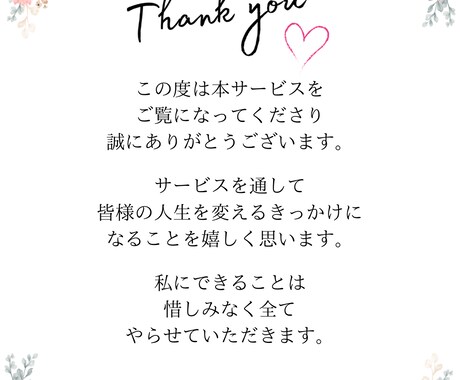 Thank you
この度は本サービスを
ご覧になってくださり
誠にありがとうございます。
サービスを通して
皆様の人生を変えるきっかけに
なることを嬉しく思います。
私にできることは
惜しみなく全て
やらせていただきます。